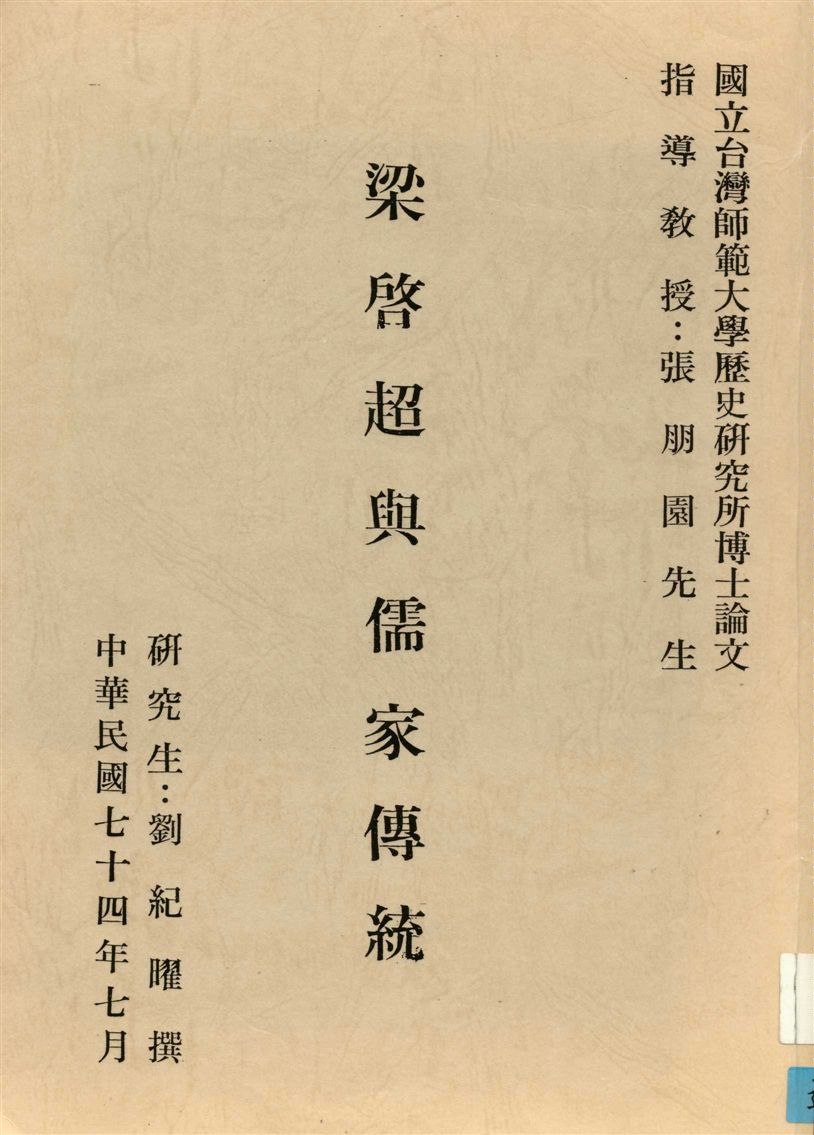 國立台灣師範大學歷史硏究所博士論文
指導教授：張朋園先生
梁啓超與儒家傳統
硏究生：劉紀曜撰
中華民國七十四年七月